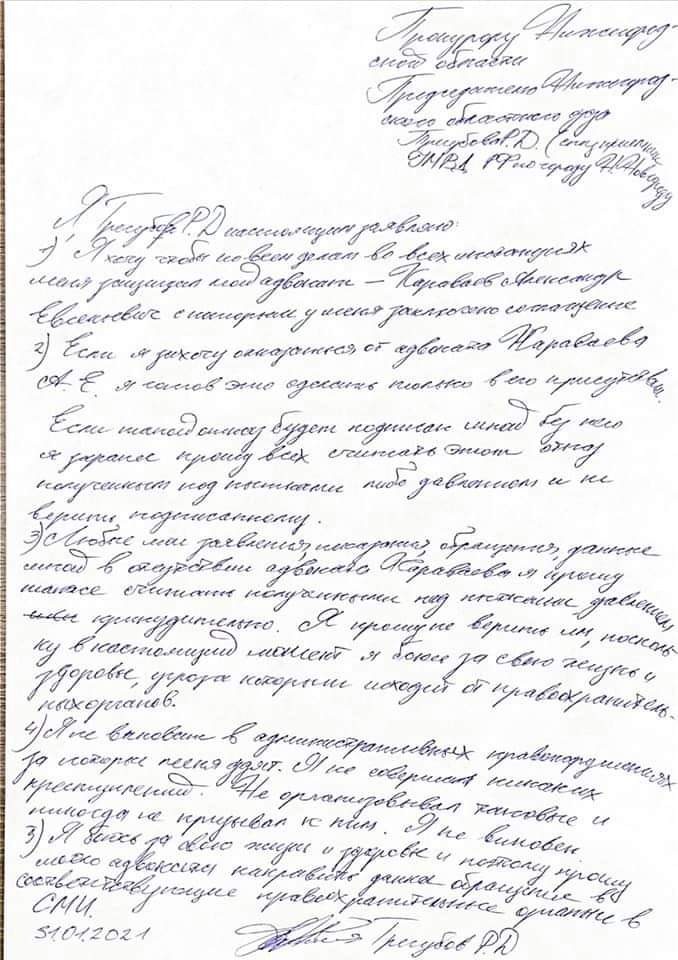 Прокурору Нижегород-
ской области
Председателю Нижегород-
ского областного суда
Трегубова Р.Д. (спецприемник
УМВД РФ по городу Н.Новгороду
Я, Трегубов Р.Д настоящим заявляю:
1) Я хочу чтобы по всем делам во всех инстанциях
меня защищал мой адвокат – Караваев Александр
Евгеньевич с которым у меня заключено соглашение
2) Если я захочу отказаться от адвоката Караваева
А.Е. я готов это сделать только в его присутствии.
Если такой отказ будет подписан мной без него
я заранее прошу всех считать этот отказ
полученным под пытками либо давлением и не
верить подписанному.
3) Любые мои заявления, показания, обращения, данные
мной в отсутствии адвоката Караваева я прошу
также считать полученными под пытками давлением
принудительно. Я прошу не верить им, посколь-
ку в настоящий момент я боюсь за свою жизнь и
здоровье, угроза которым исходит от правоохранитель-
ных органов.
4) Я не виновен в административных правонарушениях
за которые меня судят. Я не совершал никаких
преступлений. Не организовывал таковые и
никогда не призывал к ним. Я не виновен
5) Я боюсь за свою жизнь и здоровье и потому прошу
моего адвоката направить данное обращение в
соответствующие правоохранительные органы в
СМИ.
31.01.2021
Трегубов Р.Д